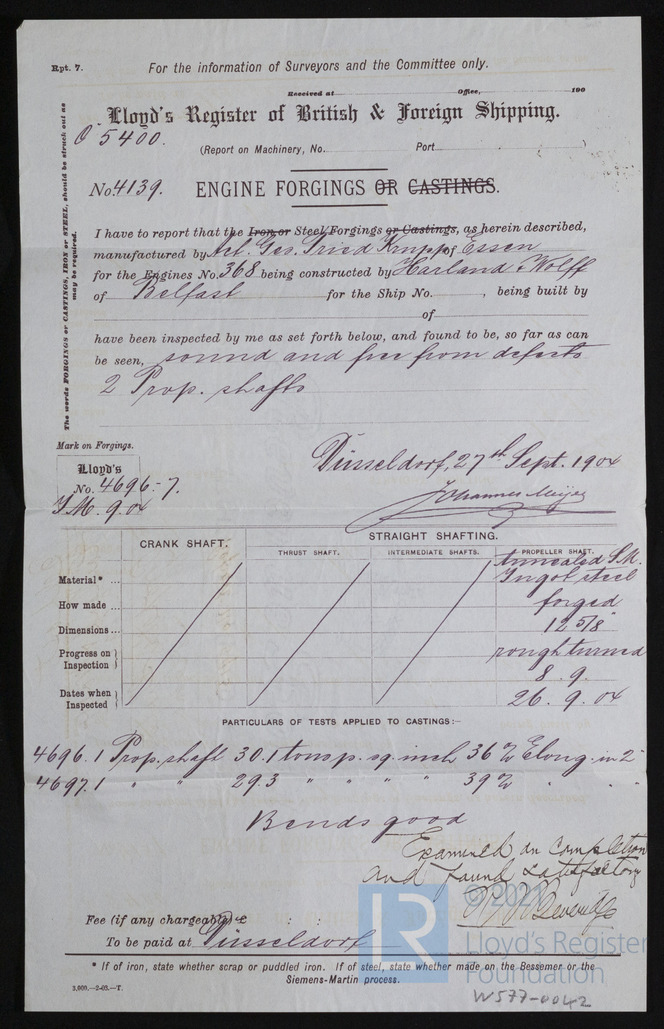 Rpt. 7.
For the information of Surveyors and the Committee only.
Received at Office, 190
Lloyd's Register of British & Foreign Shipping.
O 5400.
(Report on Machinery, No. Port
No. 4139. ENGINE FORGINGS OR CASTINGS.
The words FORGINGS or CASTINGS, IRON or STEEL, should be struck out as may be required.
I have to report that the Iron, or Steel, Forgings or Castings, as herein described,
manufactured by Act. Ges. Fried Krupp of Essen
for the Engines No. 368 being constructed by Harland & Wolff
of Belfast for the Ship No. , being built by
of
have been inspected by me as set forth below, and found to be, so far as can
be seen, sound and free from defects
2 Prop. shafts
Mark on Forgings.
Lloyd's
No. 4696-7.
J.M. 9.04
Düsseldorf, 27th Sept. 1904
Johannes Meijer
CRANK SHAFT. STRAIGHT SHAFTING.
THRUST SHAFT. INTERMEDIATE SHAFTS. PROPELLER SHAFT.
Material* ... Annealed S.M.
Ingot steel
How made ... forged
Dimensions ... 12 5/8"
Progress on Inspection rough turned
8. 9.
Dates when Inspected 26. 9. 04
PARTICULARS OF TESTS APPLIED TO CASTINGS:—
4696. 1 Prop. shaft 30.1 tons p. sq. inch 36% Elong. in 2"
4697. 1 " " 29.3 " " " " 39% " "
Bends good
Examined on completion
and found satisfactory
Fee (if any chargeable) £ : :
To be paid at Düsseldorf
* If of iron, state whether scrap or puddled iron. If of steel, state whether made on the Bessemer or the
Siemens-Martin process.
3,000.—2-03.—T.
© 2021
LR
Lloyd's Register
Foundation
W577-0042